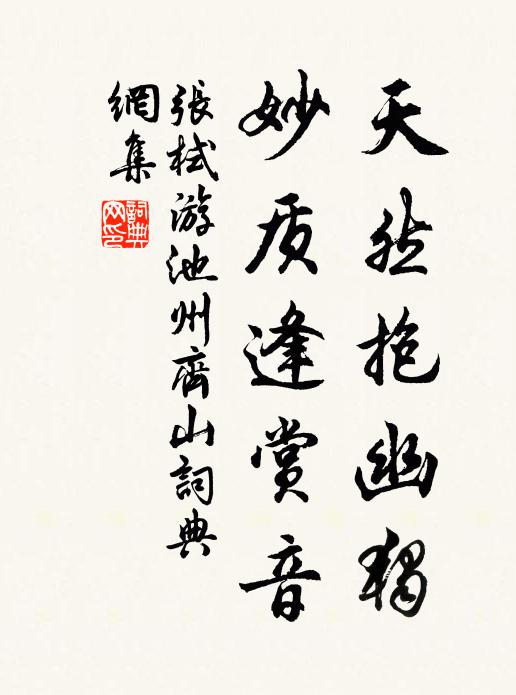 天然抱幽獨
妙质逢赏音
張栻游池州齊山詞典
網集
詞典
网印